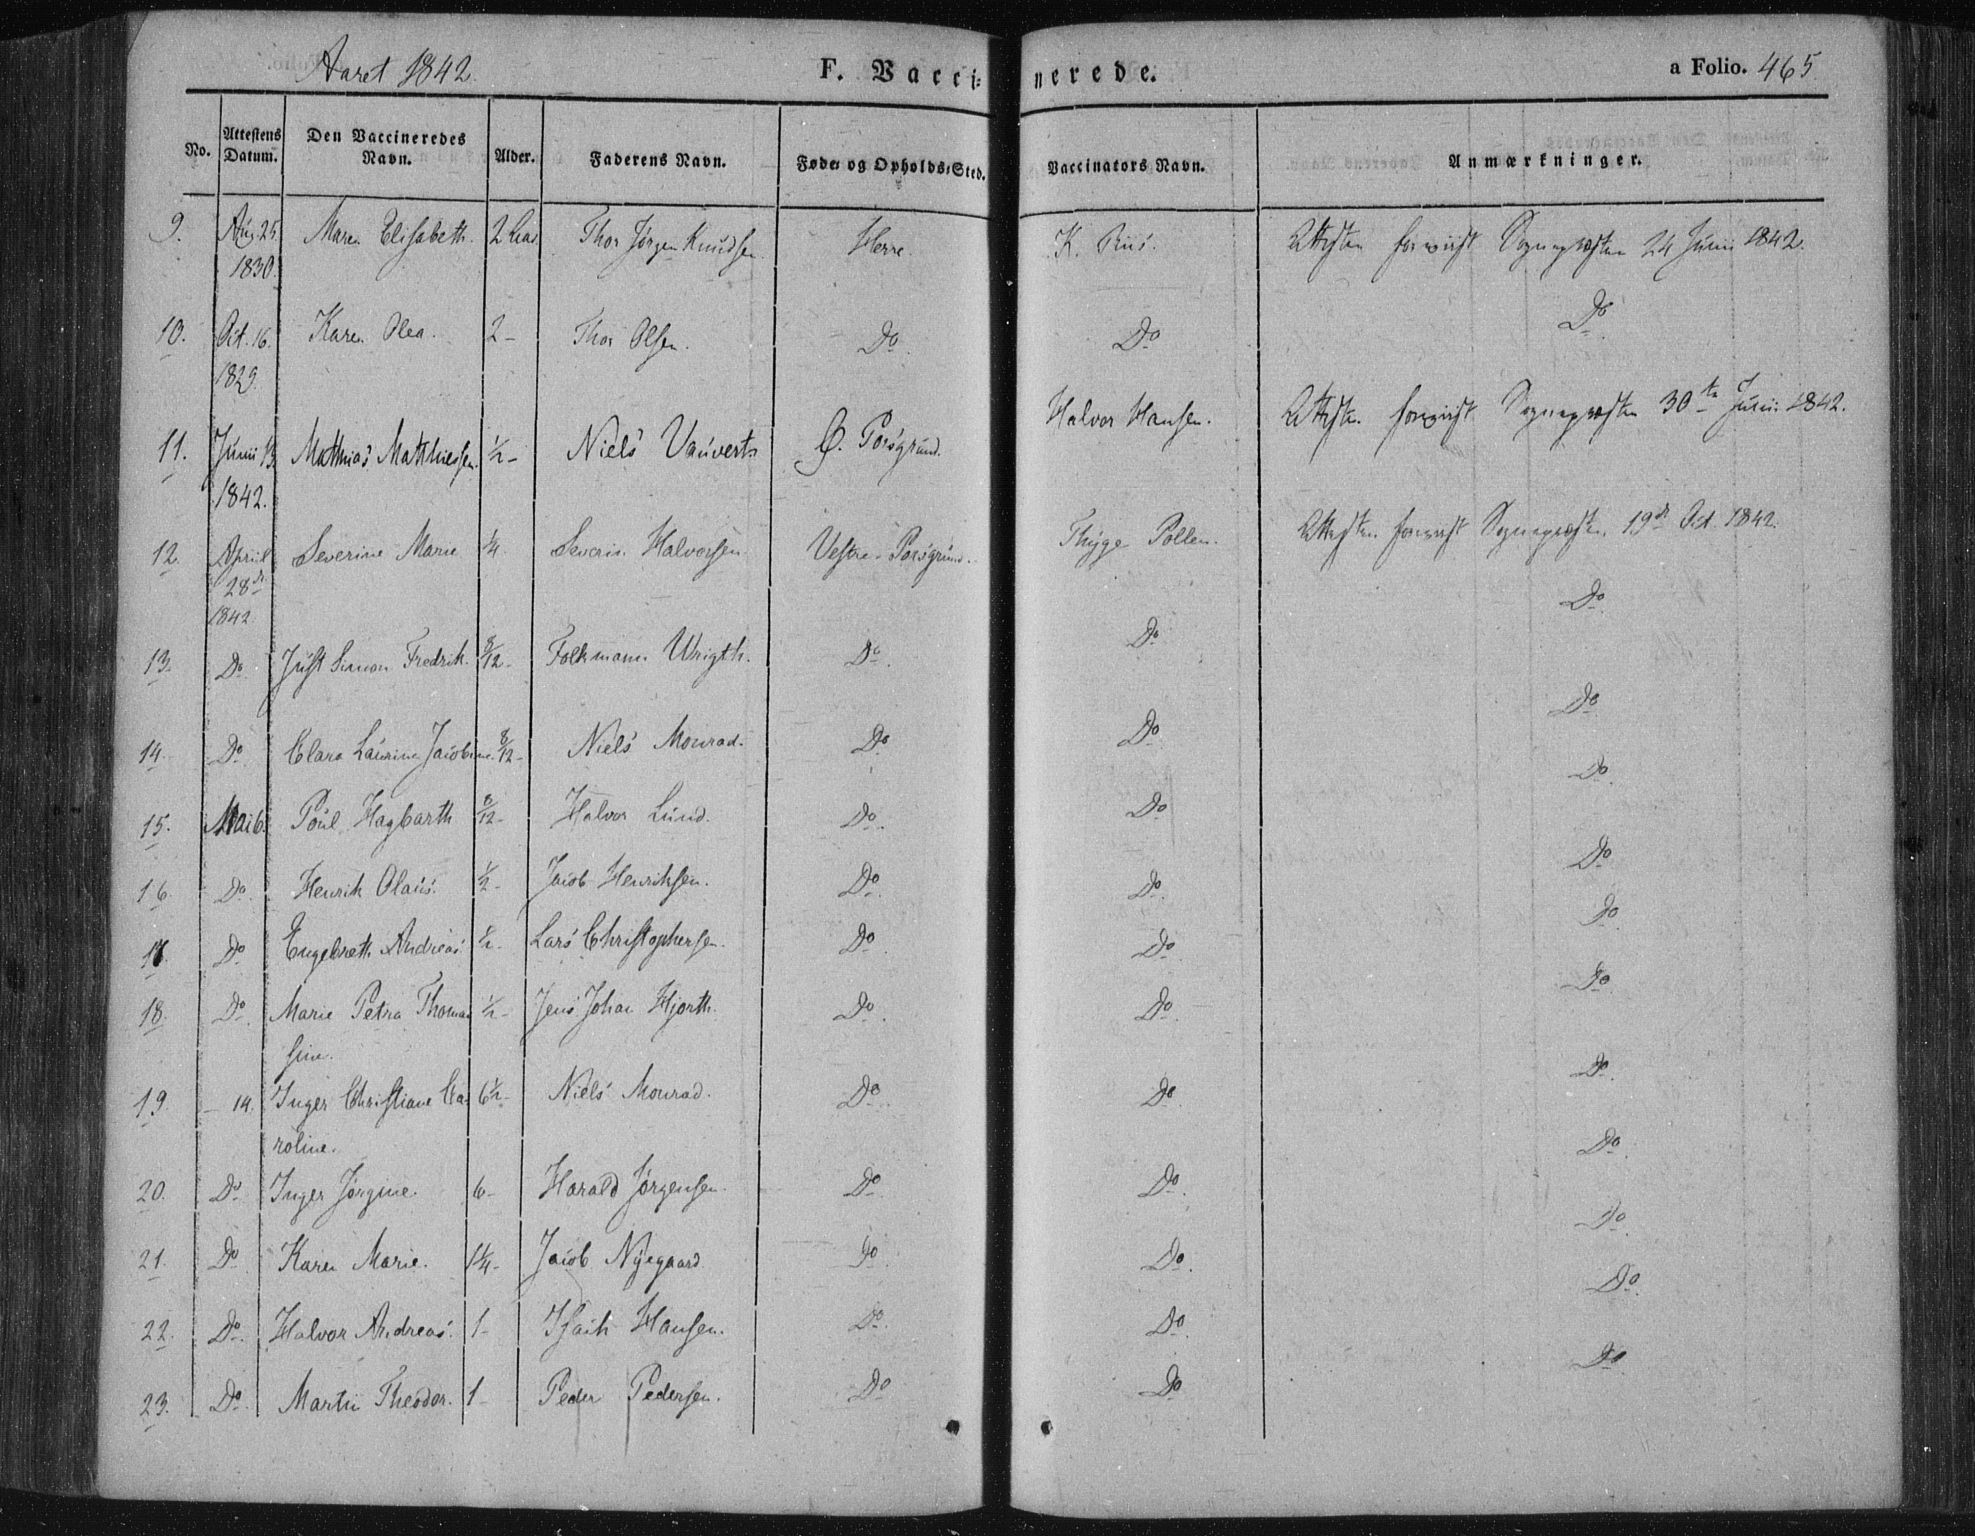 Aaret 1842. F. Vaccinerede. a Folio. 465
No. Attestens Datum. Den Vaccineredes Navn. Alder. Faderens Navn. Føde- og Opholds-Sted. Vaccinators Navn. Anmærkninger.
9. Aug 25. 1830. Maren Elisabeth. 2 Thor Jørgen Knudsen. Herre. K. Attesten foreviist Sognepræsten 24 Junii 1842.
10. Oct. 16. 1829. Karen Olea. 2 - Thor Olsen. Do. Do Do
11. Junii 13 1842. Matthias Matthiesen. ½ - Niels Ø. Porsgrund. Halvor Hansen. Attesten foreviist Sognepræsten 30te Junii 1842.
12. April 28de 1842. Severine Marie ¼. Severin Halvorsen Vestre-Porsgrund. Thyge Pollen. Attesten foreviist Sognepræsten 19de Oct. 1842.
13. Do Just Simon Fredrik. Folkmann Wrigth. Do. Do Do.
14. Do Clara Laurine Jacobine. 8/12 - Niels Monrad. Do Do. Do
15. Mai 6. Poul Hagbarth 8/12 - Halvor Lund. Do. Do Do.
16. Do. Henrik Olaus. ½ - Jacob Henriksen. Do. Do. Do
17. Do Engebreth Andreas ½ - Lars Christophersen. Do. Do Do
18. Do. Marie Petra Thoma- ½ - Jens Johan Hjorth. Do. Do. Do.
sine.
19. - 14. Inger Christiane Ca- 6½ - Niels Monrad. Do. Do. Do.
roline.
20. Do Inger Jørgine. 6 - Harald Jørgensen. Do. Do. Do.
21. Do Karen Marie. 1¼ - Jacob Nyegaard Do Do. Do.
22. Do. Halvor Andreas. 1 - Isach Hansen. Do. Do. Do.
23. Do. Martin Theodor. 1 - Peder Pedersen. Do Do Do